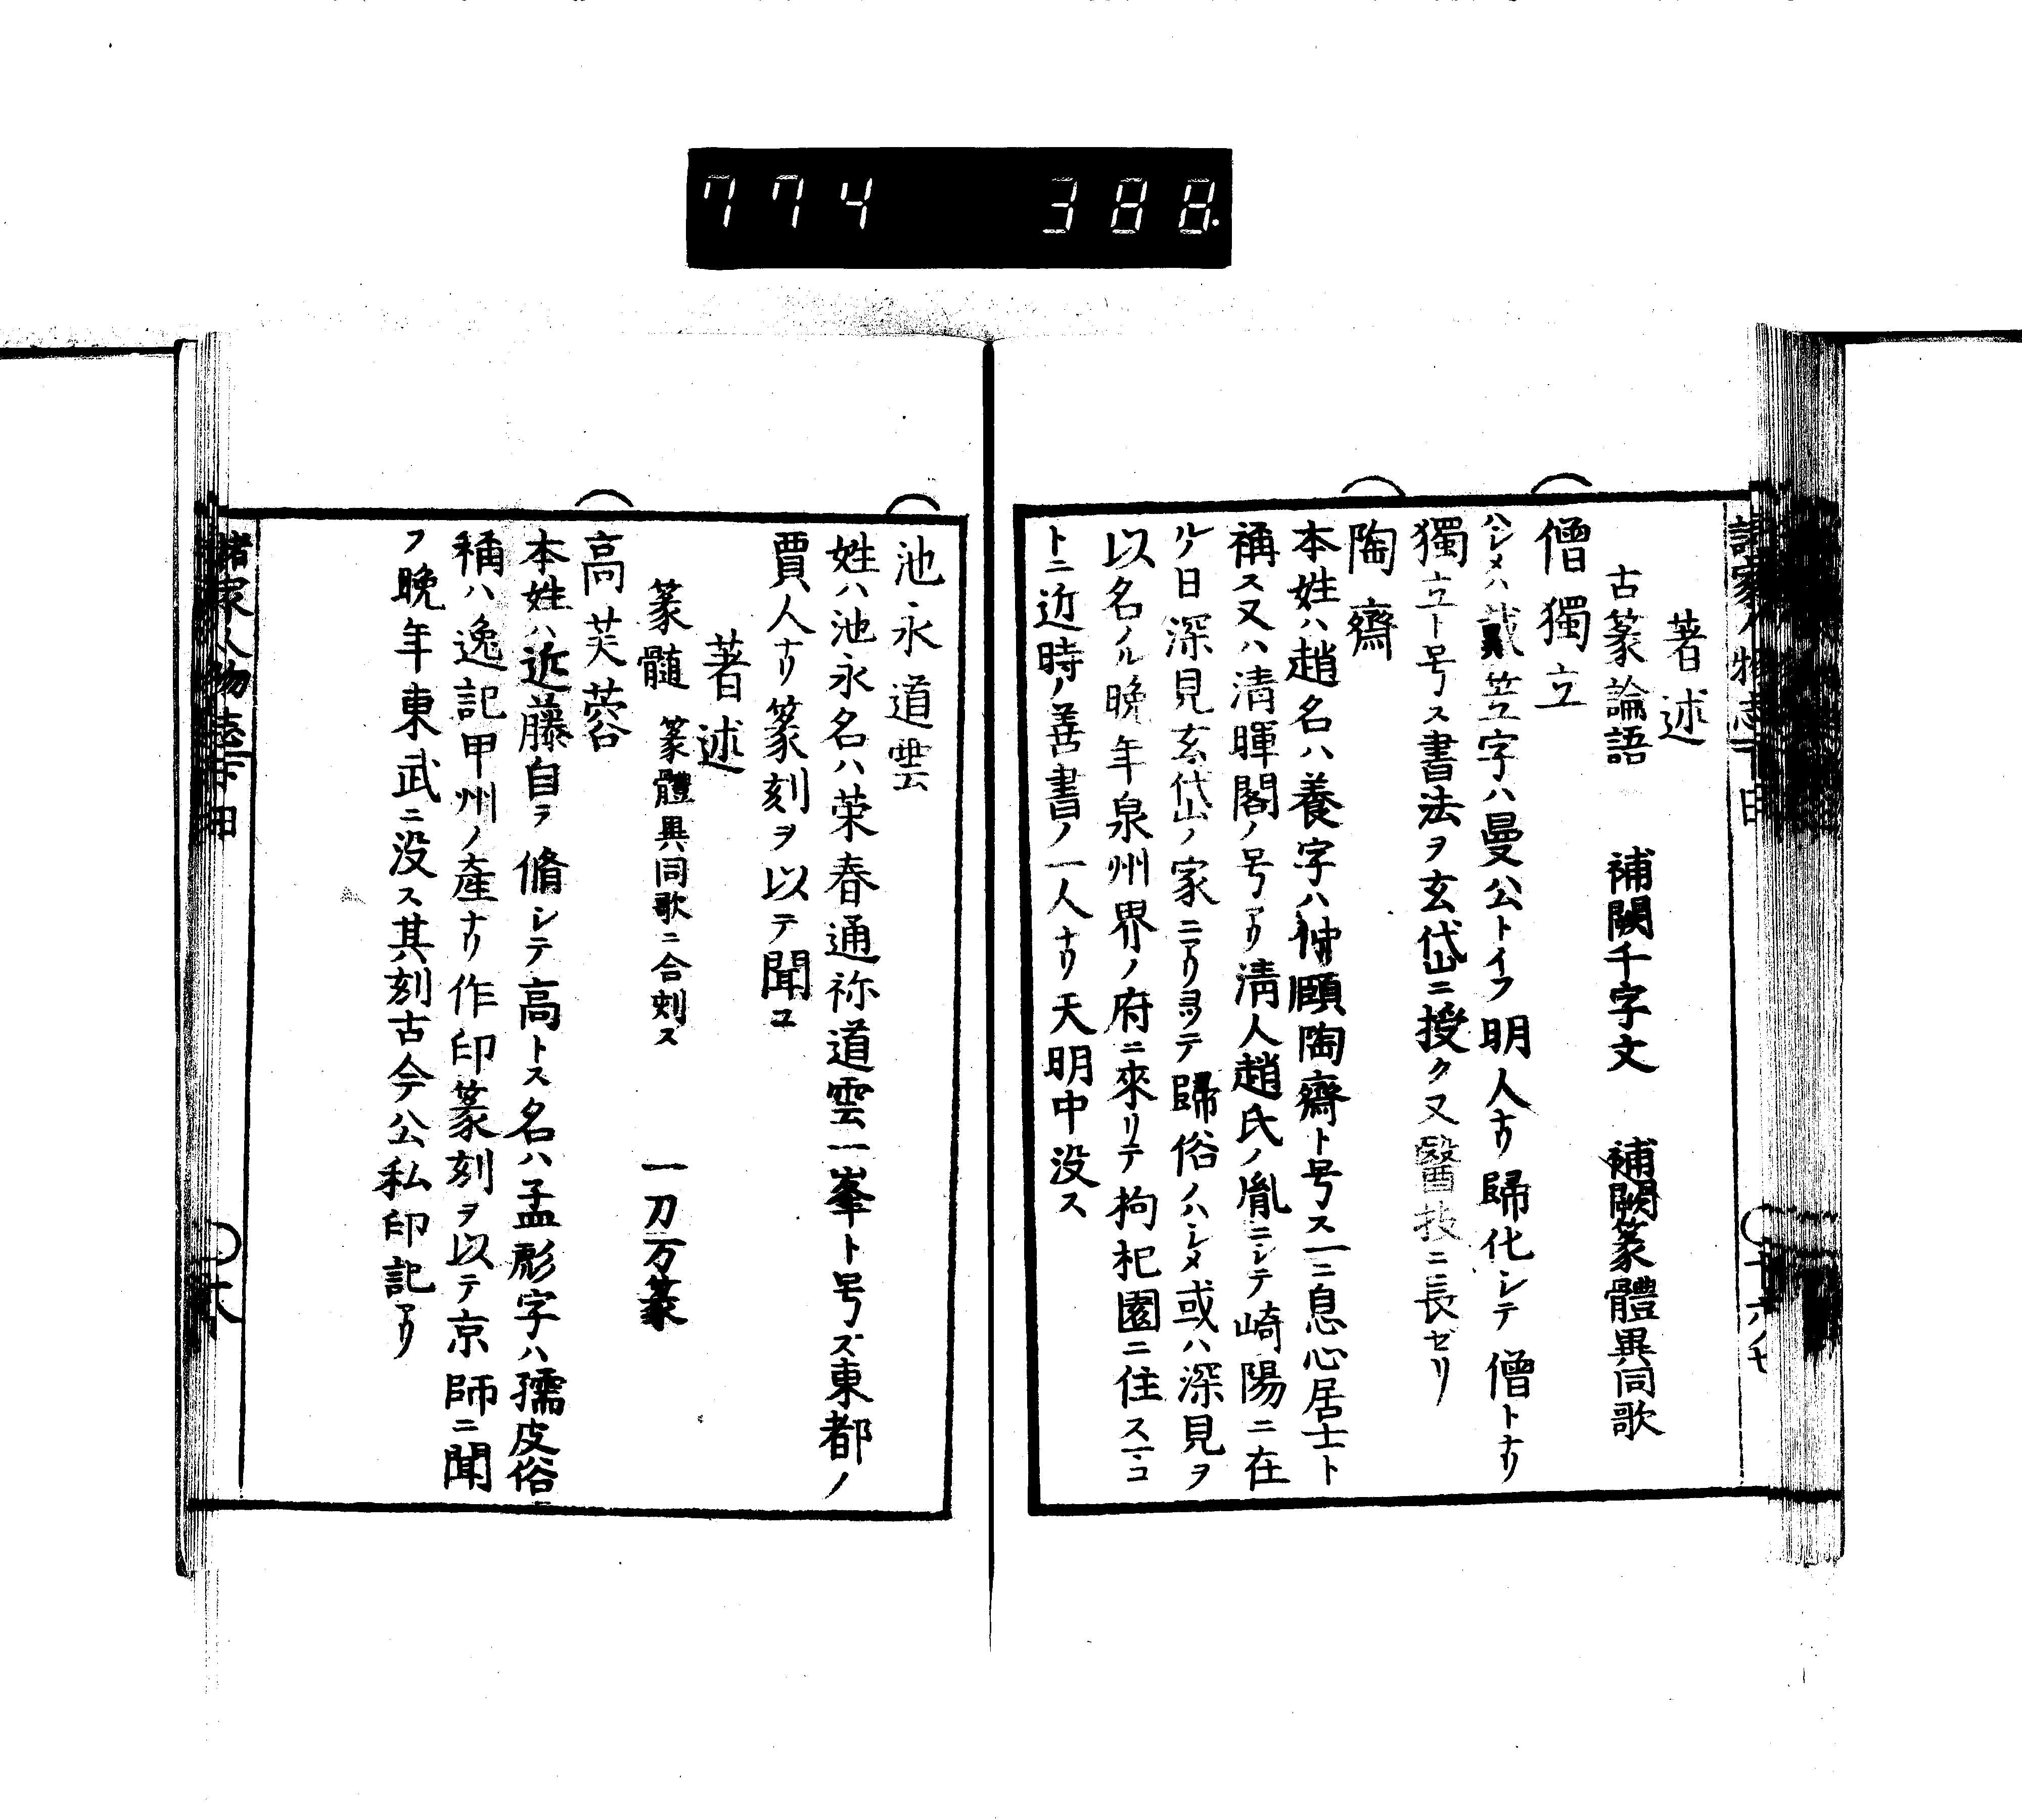 774 388
諸家人物志下
著述
古篆論語 補闕千字文 補闕篆體異同歌
僧獨立
ハシメハ戴笠字ハ曼公トイフ明人ナリ歸化シテ僧トナリ
獨立ト号ス書法ヲ玄岱ニ授ク又醫技ニ長ゼリ
陶齋
本姓ハ趙名ハ養字ハ仲頤陶齋ト号ス一ニ息心居士ト
稱ス又ハ清暉閣ノ号アリ清人趙氏ノ胤ニシテ崎陽ニ在
ルノ日深見玄岱ノ家ニアリヨツテ歸俗ノハシメ或ハ深見ヲ
以名ノル晩年泉州界ノ府ニ來リテ枸杞園ニ住スコ
トニ近時ノ善書ノ一人ナリ天明中没ス
池永道雲
姓ハ池永名ハ榮春通祢道雲一峯ト号ズ東都ノ
賈人ナリ篆刻ヲ以テ聞ユ
著述
篆髄 篆體異同歌ニ合刻ス 一刀万篆
高芙蓉
本姓ハ近藤自ラ脩シテ高トス名ハ孟彪字ハ孺皮俗
稱ハ逸記甲州ノ產ナリ作印篆刻ヲ以テ京師ニ聞
フ晩年東武ニ没ス其刻古今公私印記アリ
諸家人物志下